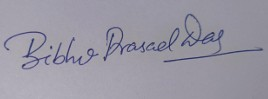 Bibhu Prasad Das